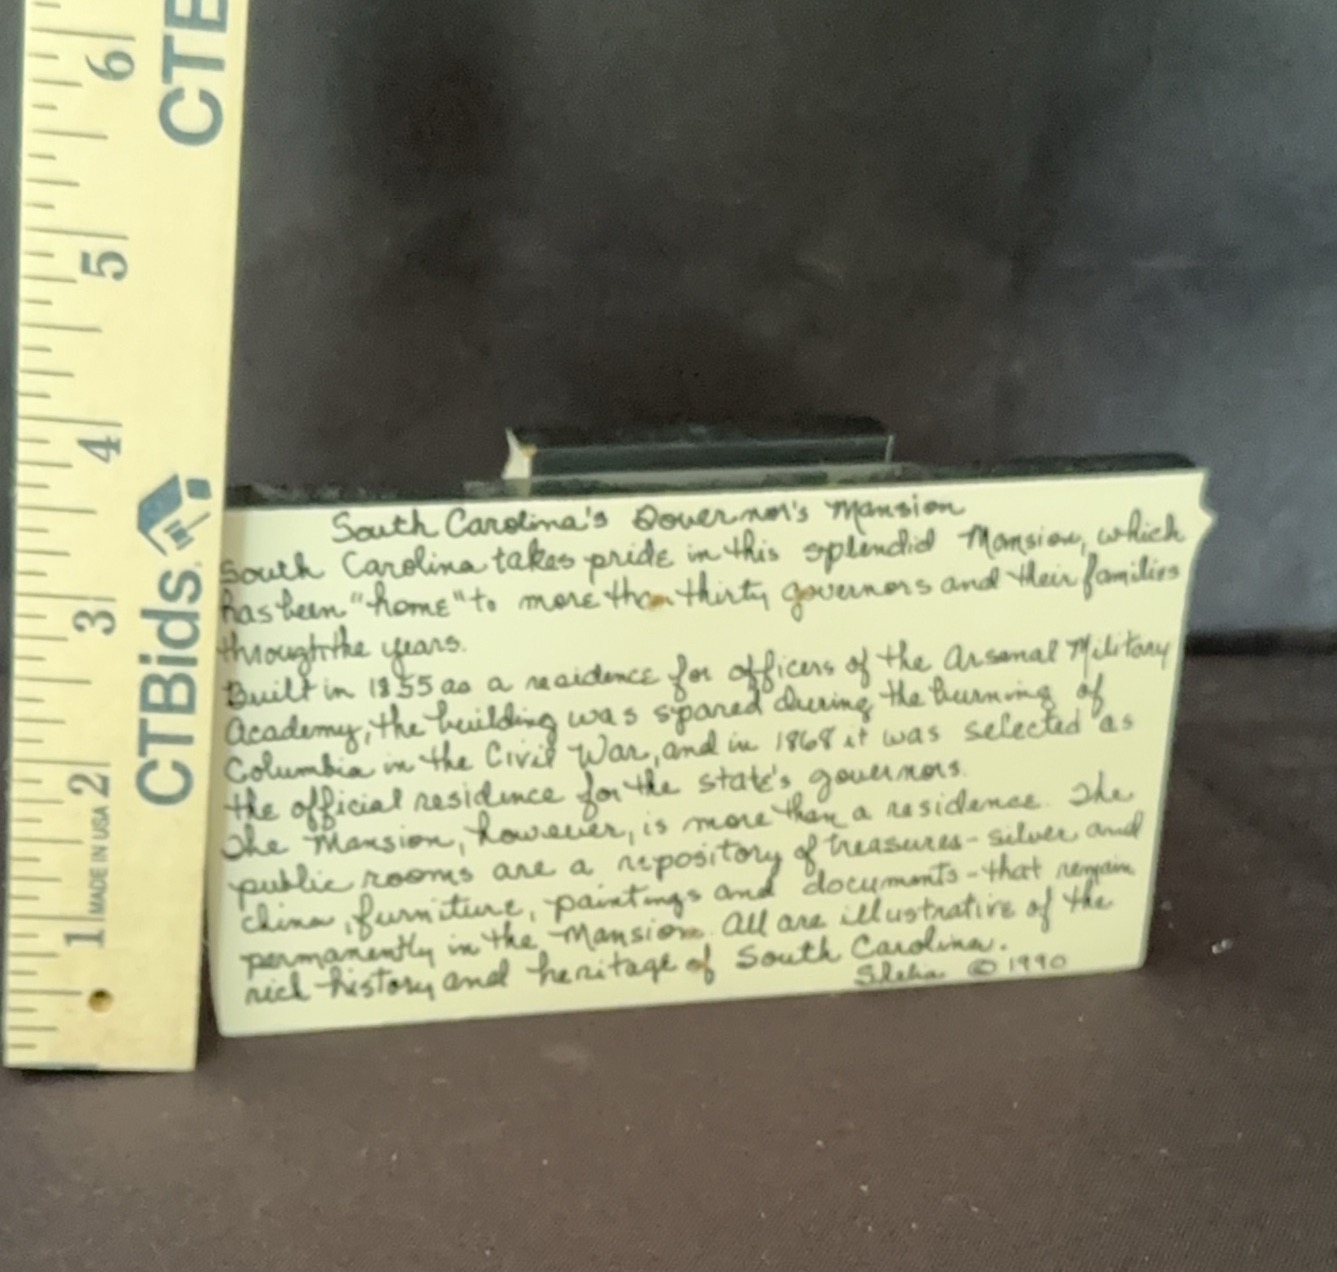 6
5
4
3
2
1
CTB
CTBids.
MADE IN USA
South Carolina's Governor's Mansion
South Carolina takes pride in this splendid Mansion, which
has been "home" to more than thirty governors and their families
through the years.
Built in 1855 as a residence for officers of the Arsenal Military
Academy, the building was spared during the burning of
Columbia in the Civil War, and in 1868 it was selected as
the official residence for the state's governors.
The Mansion, however, is more than a residence. The
public rooms are a repository of treasures - silver and
china, furniture, paintings and documents - that remain
permanently in the Mansion. All are illustrative of the
rich history and heritage of South Carolina.
© 1990